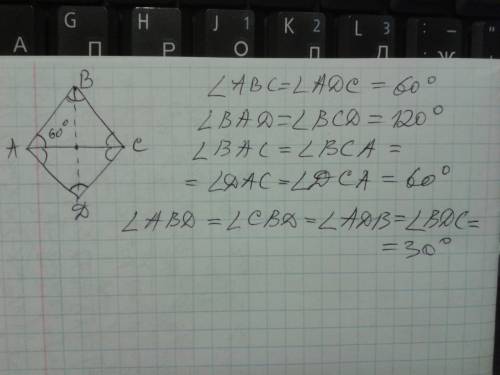 A G П H Р J 1 О K 2 Л L 3 Д : ; Ж
B
60°
A C
D
∠ABC=∠ADC = 60°
∠BAD=∠BCD = 120°
∠BAC = ∠BCA =
= ∠DAC=∠DCA = 60°
∠ABD = ∠CBD=∠ADB=∠BDC=
= 30°